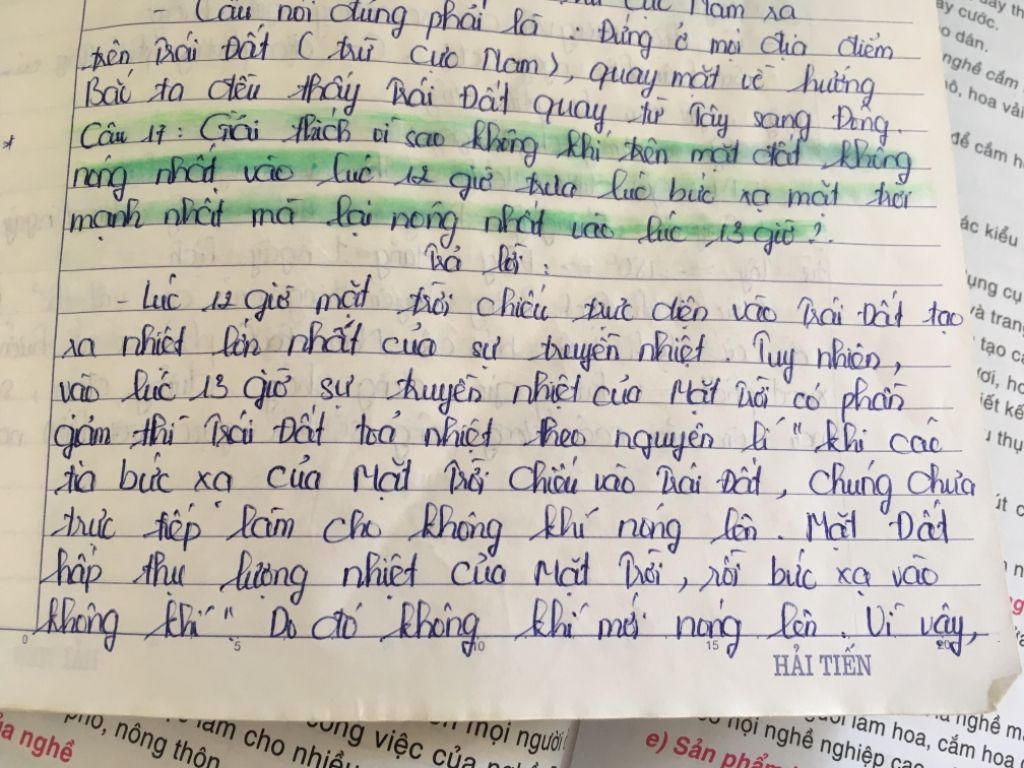 - Câu nói đúng phải là : Đứng ở mọi địa điểm
trên Trái Đất ( trừ Cực Nam ), quay mặt về hướng
Bắc ta đều thấy Trái Đất quay từ Tây sang Đông.
* Câu 17 : Giải thích vì sao không khí trên mặt đất không
nóng nhất vào lúc 12 giờ trưa lúc bức xạ mặt trời
mạnh nhất mà lại nóng nhất vào lúc 13 giờ ?.
Trả lời :
- Lúc 12 giờ mặt trời chiếu trực diện vào Trái Đất tạo
ra nhiệt lớn nhất của sự truyền nhiệt. Tuy nhiên,
vào lúc 13 giờ sự truyền nhiệt của Mặt Trời có phần
giảm thì Trái Đất toả nhiệt theo nguyên lí " khi các
tia bức xạ của Mặt Trời chiếu vào Trái Đất, chúng chưa
trực tiếp làm cho không khí nóng lên. Mặt Đất
hấp thụ lượng nhiệt của Mặt Trời, rồi bức xạ vào
không khí " Do đó không khí mới nóng lên. Vì vậy,
0 5 10 15 20
HẢI TIẾN
ây cước.
o dân.
nghề cắm
để cắm h
ác kiểu
ụng cụ
và trang
tạo cá
iết kế
u thụ
út c
ủa nghề
phố, nông thôn
làm cho nhiều
công việc của
mọi người
e) Sản phẩm
nội nghề nghiệp cao
làm hoa, cắm hoa
nghề m